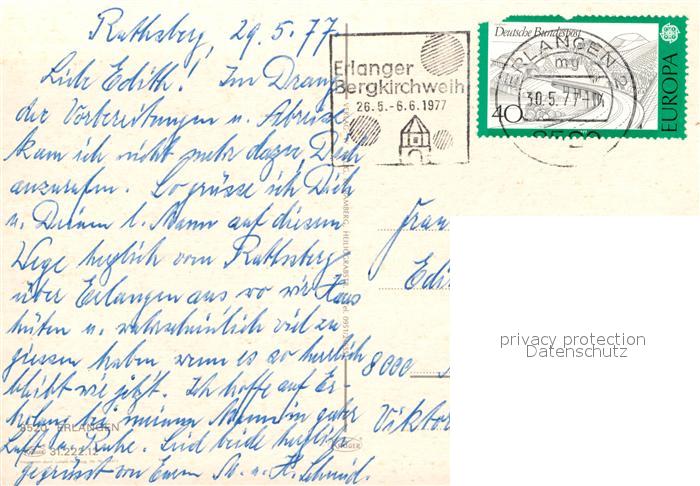 Rathsberg, 29.5.77
Liebe Edith! Im Drang
der Vorbereitungen u. Abreise
kam ich nicht mehr dazu, Dich
anzurufen. So grüsse ich Dich
u. Deinen l. Mann auf diesem
Wege herzlich vom Rathsberg
über Erlangen aus wo wir Haus
hüten u. wahrscheinlich viel zu
giessen haben, wenn es so herrlich
bleibt wie jetzt. Ich hoffe auf Er-
holung bei meinem Mann in guter
Luft u. Ruhe. Seid beide herzlich
gegrüsst von Euren M. u. H. Schmid.
8520 ERLANGEN
KRÜGER 31.222.12
Erlanger
Bergkirchweih
26.5.-6.6.1977
Deutsche Bundespost
40
EUROPA
ERLANGEN 2
mg
30.5.77
8520
KRÜGER
Frau
Edi
8000
Viktor
privacy protection
Datenschutz